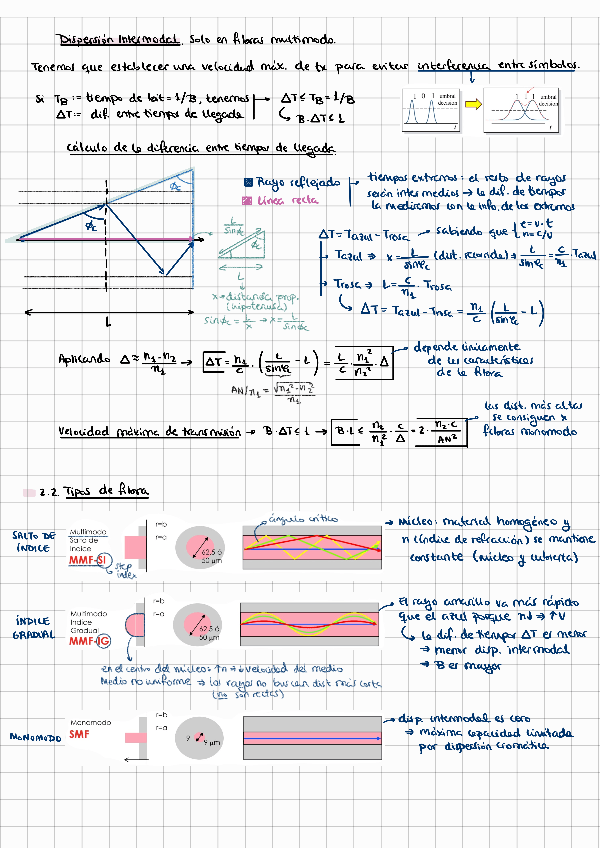 Dispersión Intermodal. Solo en fibras multimodo.
Tenemos que establecer una velocidad máx. de tx para evitar interferencia entre símbolos.
Si TB := tiempo de bit = 1/B, tenemos → ΔT ≤ TB = 1/B
ΔT := dif. entre tiempos de llegada ↳ B·ΔT ≤ 1
1 0 1 umbral decisión t
1 1 umbral decisión t
Cálculo de la diferencia entre tiempos de llegada
Rayo reflejado
Línea recta
tiempos extremos: el resto de rayos
serán intermedios → la dif. de tiempos
la mediremos con la info. de los extremos
ϕc
ϕc
L
L/sinϕc
ϕc
L
x → distancia prop.
(hipotenusa)
sinϕc = L/x → x = L/sinϕc
ΔT = Tazul - Trosa → sabiendo que { e = v·t
n = c/v
Tazul → x = L/sinϕc (dist. recorrida) → L/sinϕc = c/n1 · Tazul
Trosa → L = c/n1 · Trosa
↳ ΔT = Tazul - Trosa = n1/c (L/sinϕc - L)
Aplicando Δ ≈ (n1-n2)/n1 → ΔT = n1/c · (L/sinϕc - L) = L/c · n1²/n2 · Δ
AN/n1 = √(n1²-n2²)/n1
depende únicamente
de las características
de la fibra
Velocidad máxima de transmisión → B·ΔT ≤ 1 → B·L ≤ n2/n1² · c/Δ = 2 · n2·c/AN²
las dist. más altas
se consiguen x
fibras monomodo
2.2. Tipos de fibra
SALTO DE
ÍNDICE
Multimodo
Salto de
Índice
MMF-SI
step
index
r=b
r=a
62.5 ó
50 μm
ángulo crítico
→ Núcleo: material homogéneo y
n (índice de refracción) se mantiene
constante (núcleo y cubierta)
ÍNDICE
GRADUAL
Multimodo
Índice
Gradual
MMF-IG
r=b
r=a
62.5 ó
50 μm
→ El rayo amarillo va más rápido
que el azul porque n↓ → ↑v
↳ la dif. de tiempos ΔT es menor
→ menor disp. intermodal
→ B es mayor
en el centro del núcleo: ↑n → ↓velocidad del medio
Medio no uniforme → los rayos no buscan dist más corta
(no son rectas)
MONOMODO
Monomodo
SMF
r=b
r=a
9
9 μm
→ disp. intermodal es cero
→ máxima capacidad limitada
por dispersión cromática